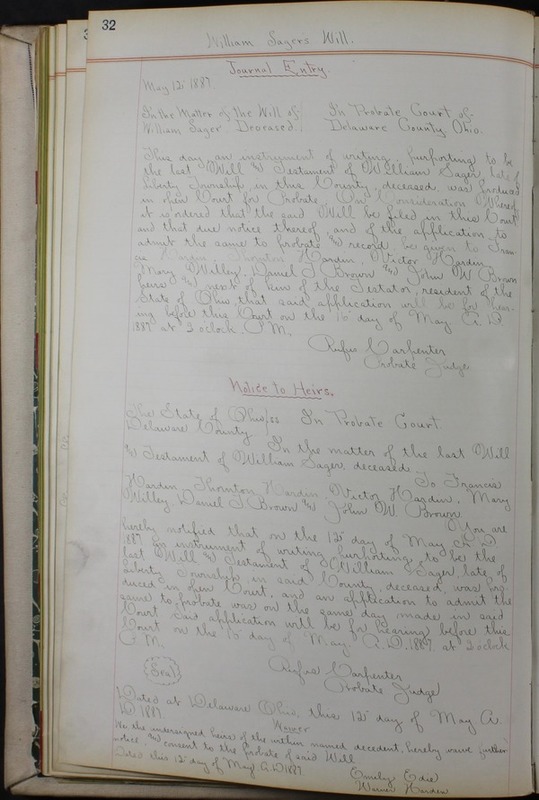 32
William Sagers Will.
Journal Entry.
May 12" 1887
In the Matter of the Will of In Probate Court of
William Sager Deceased Delaware County, Ohio.
This day an instrument of writing purporting to be
the last Will & Testament of William Sager, late of
Liberty Township in this County, deceased was produced
in open Court for Probate, On Consideration Whereof
it is ordered that the said Will be filed in this Court
and that due notice thereof, and of the application to
admit the same to probate & record be given to Fran-
cis Hardin Thornton Hardin, Victor Hardin,
Mary Willey, Daniel T Brown & John W Brown
heirs & next of kin of the Testator resident of the
State of Ohio that said application will be for hear-
ing before this Court on the day of May A. D
1887 at 2 oclock P. M.
Rufus Carpenter
Probate Judge
Notice to Heirs.
The State of Ohio ss In Probate Court.
Delaware County
In the matter of the last Will
& Testament of William Sager, deceased.
To Francis
Hardin, Thornton Hardin, Victor Hardin, Mary
Willey Daniel T Brown & John W Brown
You are
hereby notified that on the 12" day of May A. D
1887 an instrument of writing purporting to be the
last Will & Testament of William Sager, late of
Liberty Township in said County, deceased, was pro
duced in open Court, and an application to admit the
same to probate was on the same day made in said
Court Said application will be for hearing before this
Court on the day of May A. D. 1887. at 2 oclock
P. M.
Rufus Carpenter
Probate Judge
Seal
Dated at Delaware Ohio, this 12" day of May A.
D 1887.
Waiver
We the undersigned heirs of the within named decedent, hereby waive further
notice, and consent to the probate of said Will
Dated this 12" day of May A. D 1887
Emily Edie
Warner Hardin